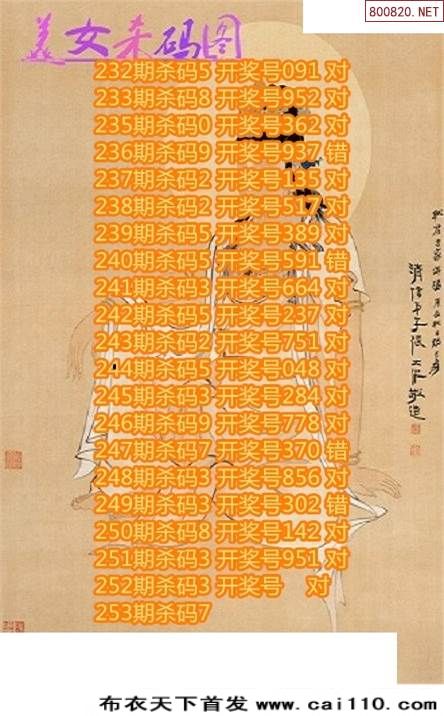 800820.NET
美女杀码图
232期杀码5 开奖号091 对
233期杀码8 开奖号952 对
235期杀码0 开奖号362 对
236期杀码9 开奖号937 错
237期杀码2 开奖号135 对
238期杀码2 开奖号517 对
239期杀码5 开奖号389 对
240期杀码5 开奖号591 错
241期杀码3 开奖号664 对
242期杀码5 开奖号237 对
243期杀码2 开奖号751 对
244期杀码5 开奖号048 对
245期杀码3 开奖号284 对
246期杀码9 开奖号778 对
247期杀码7 开奖号370 错
248期杀码3 开奖号856 对
249期杀码3 开奖号302 错
250期杀码8 开奖号142 对
251期杀码3 开奖号951 对
252期杀码3 开奖号 对
253期杀码7
布衣天下首发 www.cai110.com